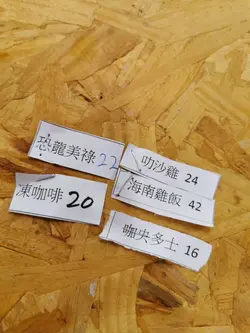 恐龍美祿 22
叻沙雞 24
海南雞飯 42
凍咖啡 20
咖央多士 16